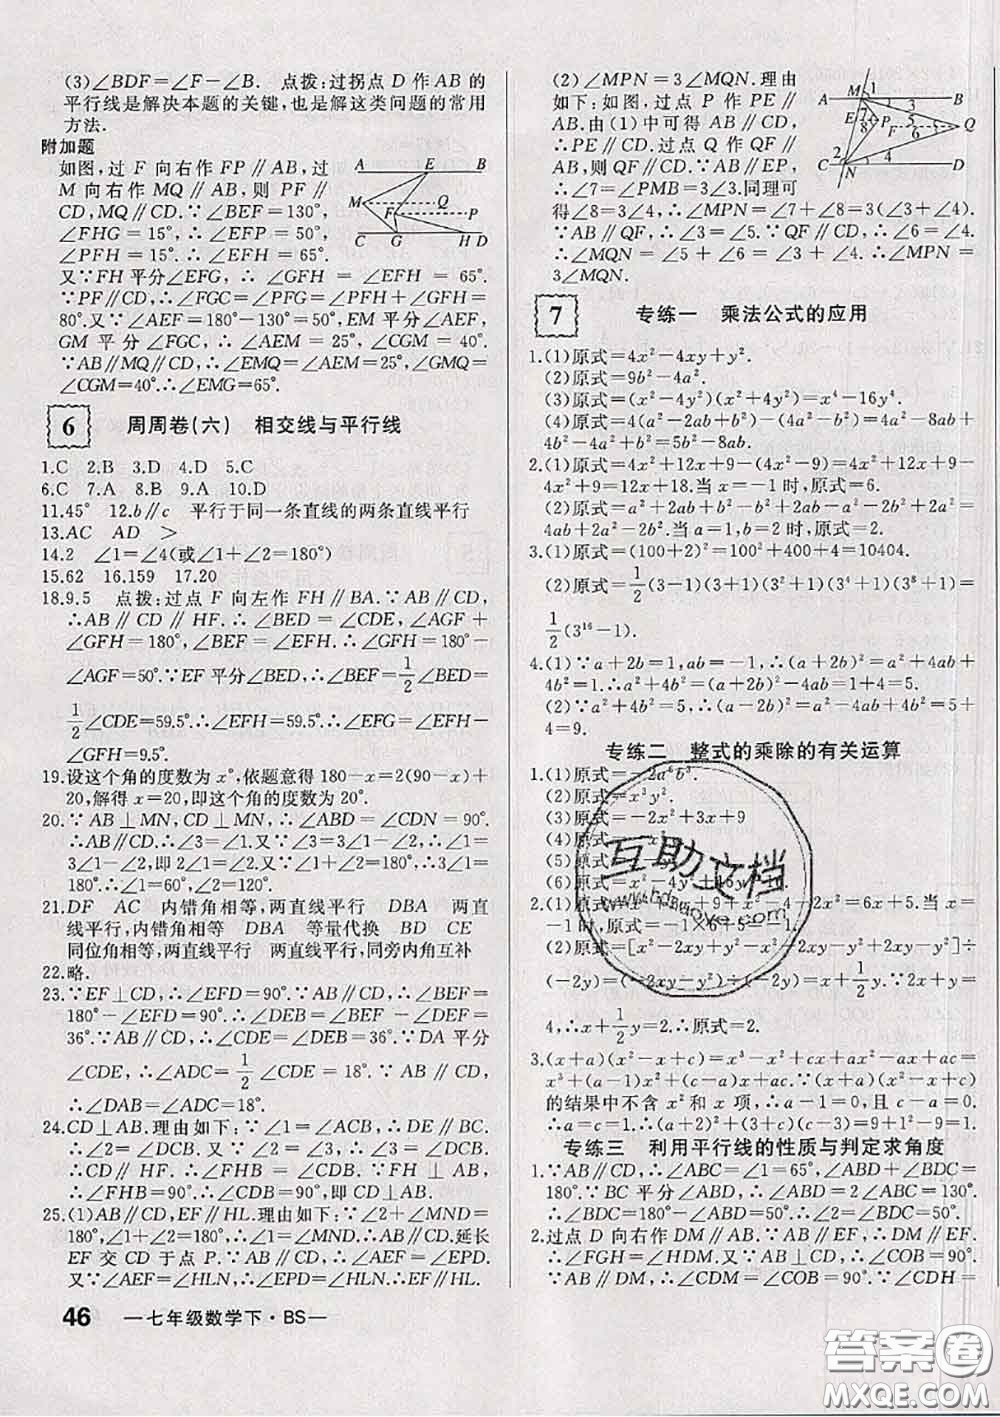 (3)∠BDF=∠F-∠B. 点拨:过拐点 D 作 AB 的
平行线是解决本题的关键,也是解这类问题的常用
方法.
附加题
如图,过 F 向右作 FP∥AB,过
M 向右作 MQ∥AB,则 PF∥
CD,MQ∥CD.∵∠BEF=130°,
∠FHG=15°,∴∠EFP=50°,
∠PFH=15°.∴∠EFH=65°.
又∵FH平分∠EFG,∴∠GFH=∠EFH=65°.
∵PF∥CD,∴∠FGC=∠PFG=∠PFH+∠GFH=
80°.又∵∠AEF=180°-130°=50°,EM 平分∠AEF,
GM 平分∠FGC,∴∠AEM=25°,∠CGM=40°.
∵AB∥MQ∥CD,∴∠EMQ=∠AEM=25°,∠GMQ=
∠CGM=40°.∴∠EMG=65°.
6 周周卷(六) 相交线与平行线
1.C 2.B 3.D 4.D 5.C
6.C 7.A 8.B 9.A 10.D
11.45° 12.b∥c 平行于同一条直线的两条直线平行
13.AC AD >
14.2 ∠1=∠4(或∠1+∠2=180°)
15.62 16.159 17.20
18.9.5 点拨:过点 F 向左作 FH∥BA.∵AB∥CD,
∴AB∥CD∥HF.∴∠BED=∠CDE,∠AGF+
∠GFH=180°,∠BEF=∠EFH.∴∠GFH=180°-
∠AGF=50°.∵EF平分∠BED,∴∠BEF=1/2∠BED=
1/2∠CDE=59.5°.∴∠EFH=59.5°.∴∠EFG=∠EFH-
∠GFH=9.5°.
19.设这个角的度数为 x°,依题意得180-x=2(90-x)+
20,解得 x=20,即这个角的度数为 20°.
20.∵AB⊥MN,CD⊥MN,∴∠ABD=∠CDN=90°.
∴AB∥CD.∴∠3=∠1.又∵∠3=3∠1-∠2,∴∠1=
3∠1-∠2,即∠2=2∠1.又∵∠2+∠3=180°,∴3∠1=
180°.∴∠1=60°.∴∠2=120°.
21.DF AC 内错角相等,两直线平行 DBA 两直
线平行,内错角相等 DBA 等量代换 BD CE
同位角相等,两直线平行 两直线平行,同旁内角互补
22.略.
23.∵EF⊥CD,∴∠EFD=90°.∵AB∥CD,∴∠BEF=
180°-∠EFD=90°.∵∠DEF=54°,∴∠DEB=
36°.∵AB∥CD,∴∠CDE=∠DEB=36°.∵DA平分
∠CDE,∴∠ADC=1/2∠CDE=18°.∵AB∥CD,
∴∠DAB=∠ADC=18°.
24.CD⊥AB.理由如下:∵∠1=∠ACB,∴DE∥BC.
∴∠2=∠DCB.又∵∠2=∠3,∴∠3=∠DCB.
∴CD∥FH.∴∠FHB=∠CDB.∵FH⊥AB,
∴∠FHB=90°.∴∠CDB=90°,即CD⊥AB.
25.(1)AB∥CD,EF∥HL.理由如下:∵∠2+∠MND=
180°,∠1+∠2=180°,∴∠1=∠MND.∴AB∥CD.延长
EF 交 CD 于点 P.∵AB∥CD,∴∠AEF=∠EPD.
又∵∠AEF=∠HLN,∴∠EPD=∠HLN.∴EF∥HL.
46 —七年级数学下·BS—
(2)∠MPN=3∠MQN.理由
如下:如图,过点 P 作 PE∥
AB.由(1)中可得 AB∥CD,
∴PE∥CD.过点 Q 作 QF∥
AB,则 QF∥CD.∵AB∥EP,
∴∠7=∠PMB=3∠3.同理可
得∠8=3∠4,∴∠MPN=∠7+∠8=3(∠3+∠4).
∵AB∥QF,∴∠3=∠5.∵QF∥CD,∴∠6=∠4.
∴∠MQN=∠5+∠6=∠3+∠4.∴∠MPN=
3∠MQN.
7 专练一 乘法公式的应用
1.(1)原式=4x²-4xy+y².
(2)原式=9b²-4a².
(3)原式=(x²-4y²)(x²+4y²)=x⁴-16y⁴.
(4)原式=(a²-2ab+b²)-(4b²-a²)=2(4a²-8ab+
4b²-4a²+b²)=5b²-8ab.
2.(1)原式=4x²+12x+9-(4x²-9)=4x²+12x+9-
4x²+9=12x+18.当x=-1时,原式=6.
(2)原式=a²+2ab+b²+2a²-2ab+ab-b²-2a²=
4ab+2a²-2a²=4ab.当a=1,b=2时,原式=2.
3.(1)原式=(100+2)²=100²+400+4=10404.
(2)原式=1/2(3-1)(3+1)(3²+1)(3⁴+1)(3⁸+1)=
1/2(3¹⁶-1).
4.(1)∵a+2b=1,ab=-1,∴(a+2b)²=a²+4ab+4b²=
1.∴a²+4b²=1-4ab=1+4=5.
(2)∵a²+4b²=5,∴(a-2b)²=a²-4ab+4b²=5+
4=9.
专练二 整式的乘除的有关运算
1.(1)原式=-2a⁶b³.
(2)原式=x³y².
(3)原式=-2x²+3x+9
(4)原式=
(5)原式=
(6)原式=x²-4y²+
2.(1)原式=x²+ =6x+5.当x=
-1时,原式=-1×6+5=-1.
(2)原式=[x²-2xy+y²-x²-2xy-y²+2xy-y²]÷
(-2y)=(-2xy-y²)÷(-2y)=x+1/2y.∵2x+y=
4,∴x+1/2y=2.∴原式=2.
3.(x+a)(x²-x+c)=x³-x²+cx+ax²-ax+ac=
x³+(a-1)x²+(c-a)x+ac.∵(x+a)(x²-x+c)
的结果中不含 x² 和 x 项,∴a-1=0,且 c-a=0.
专练三 利用平行线的性质与判定求角度
1.∵AB∥CD,∴∠ABC=∠1=65°,∠ABD+∠BDC=
180°.∵BC平分∠ABD,∴∠ABD=2∠ABC=130°.
∴∠BDC=180°-∠ABD=50°.∴∠2=∠BDC=50°.
2.过点 D 向右作 DM∥AB.∵AB∥EF,∴DM∥EF.
∴∠FGH=∠HDM.又∵CO⊥AB,∴∠COB=90°.
∵AB∥DM,∴∠CDM=∠COB=90°.∵∠CDH=
互助文档
www.hdzuoye.com
答案圈
MXQE.COM